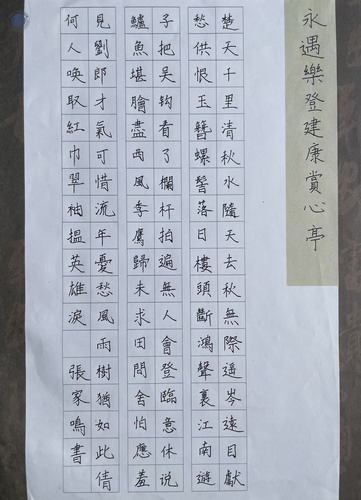 永遇樂登建康賞心亭
楚天千里清秋水隨天去秋無際遥岑遠目獻
愁供恨玉簪螺髻落日樓頭斷鴻聲裏江南遊
子把吴钩看了欄杆拍遍無人會登臨意休说
鱸魚堪膾盡西風季鷹歸未求田問舍怕應羞
見劉郎才氣可惜流年憂愁風雨樹猶如此倩
何人唤取紅巾翠袖揾英雄淚 張家鳴書